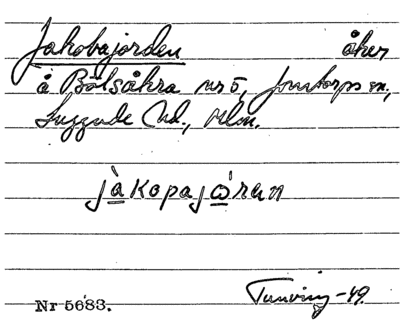 Jakobajorden åker
å Bölsåkra nr 5, Jonstorps sn,
Luggude hd., Mlm.
jàkopajó̱ren
Nr 5683.
Tuneving -49.